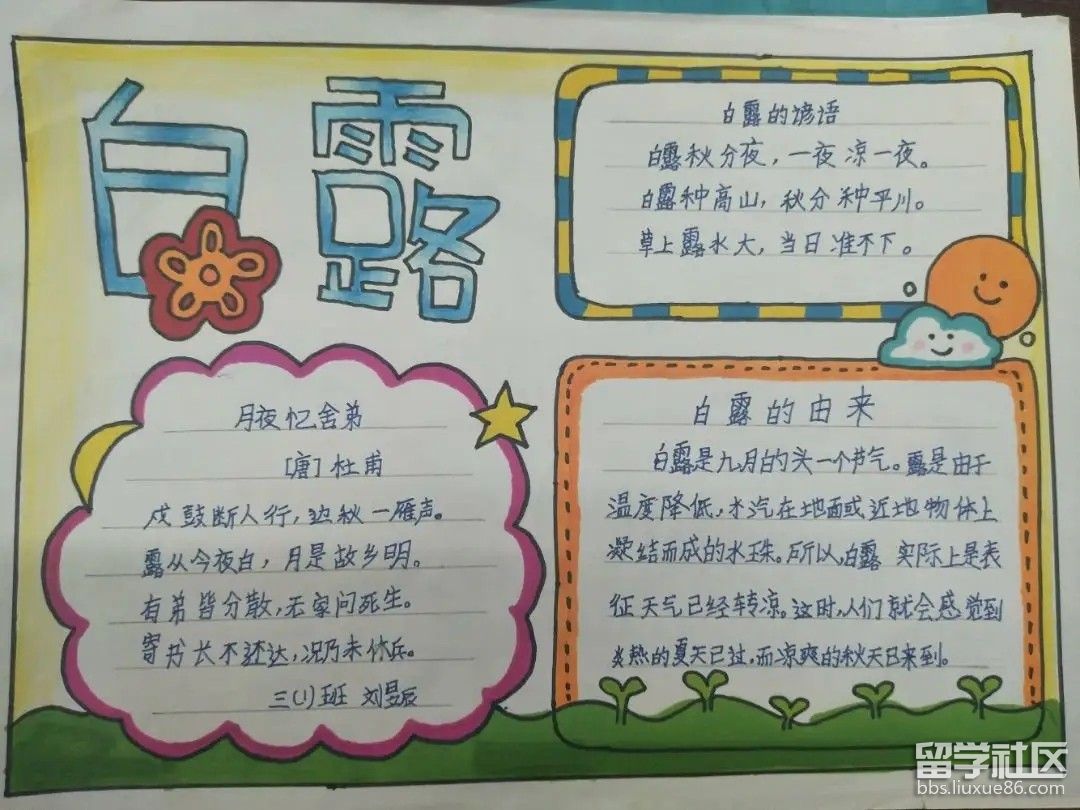 白露
白露的谚语
白露秋分夜，一夜凉一夜。
白露种高山，秋分种平川。
草上露水大，当日准不下。
月夜忆舍弟
[唐]杜甫
戍鼓断人行，边秋一雁声。
露从今夜白，月是故乡明。
有弟皆分散，无家问死生。
寄书长不达，况乃未休兵。
三(1)班 刘昱辰
白露的由来
白露是九月的头一个节气。露是由于
温度降低，水汽在地面或近地物体上
凝结而成的水珠。所以，白露实际上是表
征天气已经转凉。这时，人们就会感觉到
炎热的夏天已过，而凉爽的秋天已来到。
留学社区
bbs.liuxue86.com